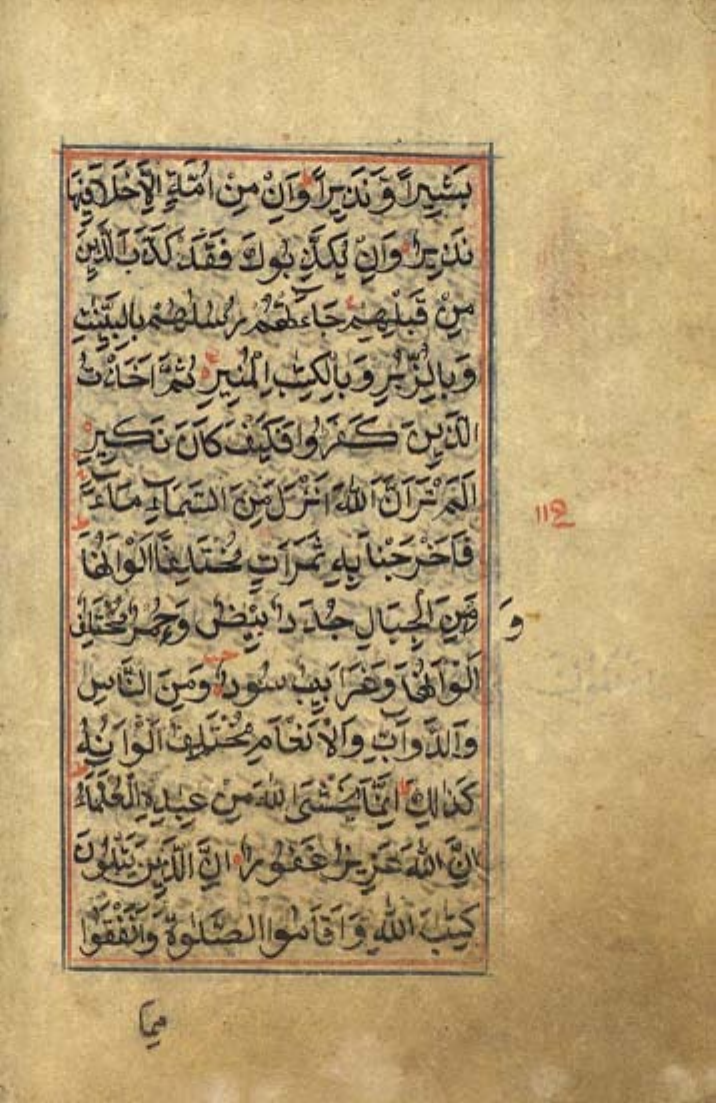 بَشِيرًا وَّنَذِيرًا وَاِنْ مِنْ اُمَّةٍ اِلَّا خَلَا فِيهَا
نَذِيرٌ وَاِنْ يُكَذِّبُوكَ فَقَدْ كَذَّبَ الَّذِينَ
مِنْ قَبْلِهِمْ جَاءَتْهُمْ رُسُلُهُمْ بِالْبَيِّنٰتِ
وَبِالزُّبُرِ وَبِالْكِتٰبِ الْمُنِيرِ ثُمَّ اَخَذْتُ
الَّذِينَ كَفَرُوا فَكَيْفَ كَانَ نَكِيرِ
اَلَمْ تَرَ اَنَّ اللّٰهَ اَنْزَلَ مِنَ السَّمَاءِ مَاءً
فَاَخْرَجْنَا بِهِ ثَمَرَاتٍ مُخْتَلِفًا اَلْوَانُهَا
وَمِنَ الْجِبَالِ جُدَدٌ بِيْضٌ وَحُمْرٌ مُخْتَلِفٌ
اَلْوَانُهَا وَغَرَابِيبُ سُودٌ وَمِنَ النَّاسِ
وَالدَّوَابِّ وَالْاَنْعَامِ مُخْتَلِفٌ اَلْوَانُهُ
كَذٰلِكَ اِنَّمَا يَخْشَى اللّٰهَ مِنْ عِبَادِهِ الْعُلَمٰؤُا
اِنَّ اللّٰهَ عَزِيزٌ غَفُورٌ اِنَّ الَّذِينَ يَتْلُونَ
كِتٰبَ اللّٰهِ وَاَقَامُوا الصَّلٰوةَ وَاَنْفَقُوا
وَ
مِمَّا